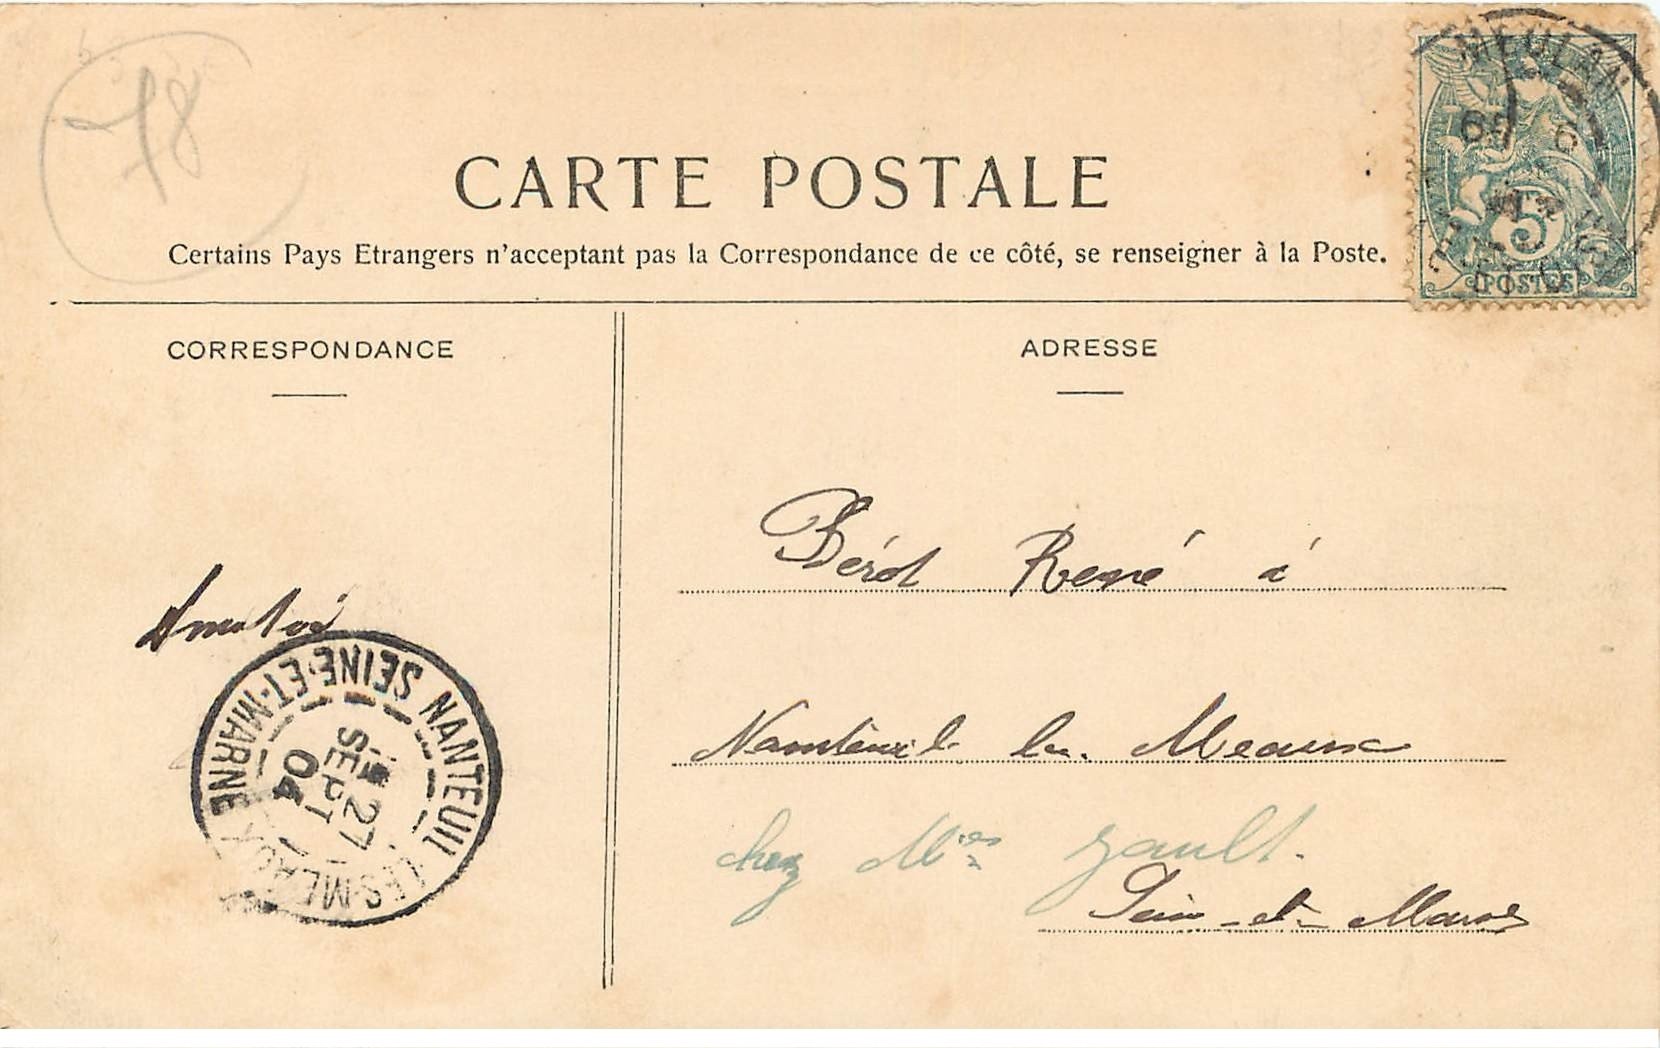 78
CARTE POSTALE
Certains Pays Etrangers n'acceptant pas la Correspondance de ce côté, se renseigner à la Poste.
MEULAN
5
POSTES
CORRESPONDANCE
ADRESSE
Bérot René à
Nanteuil les Meaux
chez Mes Gault.
Seine-et-Marne
NANTEUIL-LES-MEAUX
SEINE-ET-MARNE
27
SEPT
04